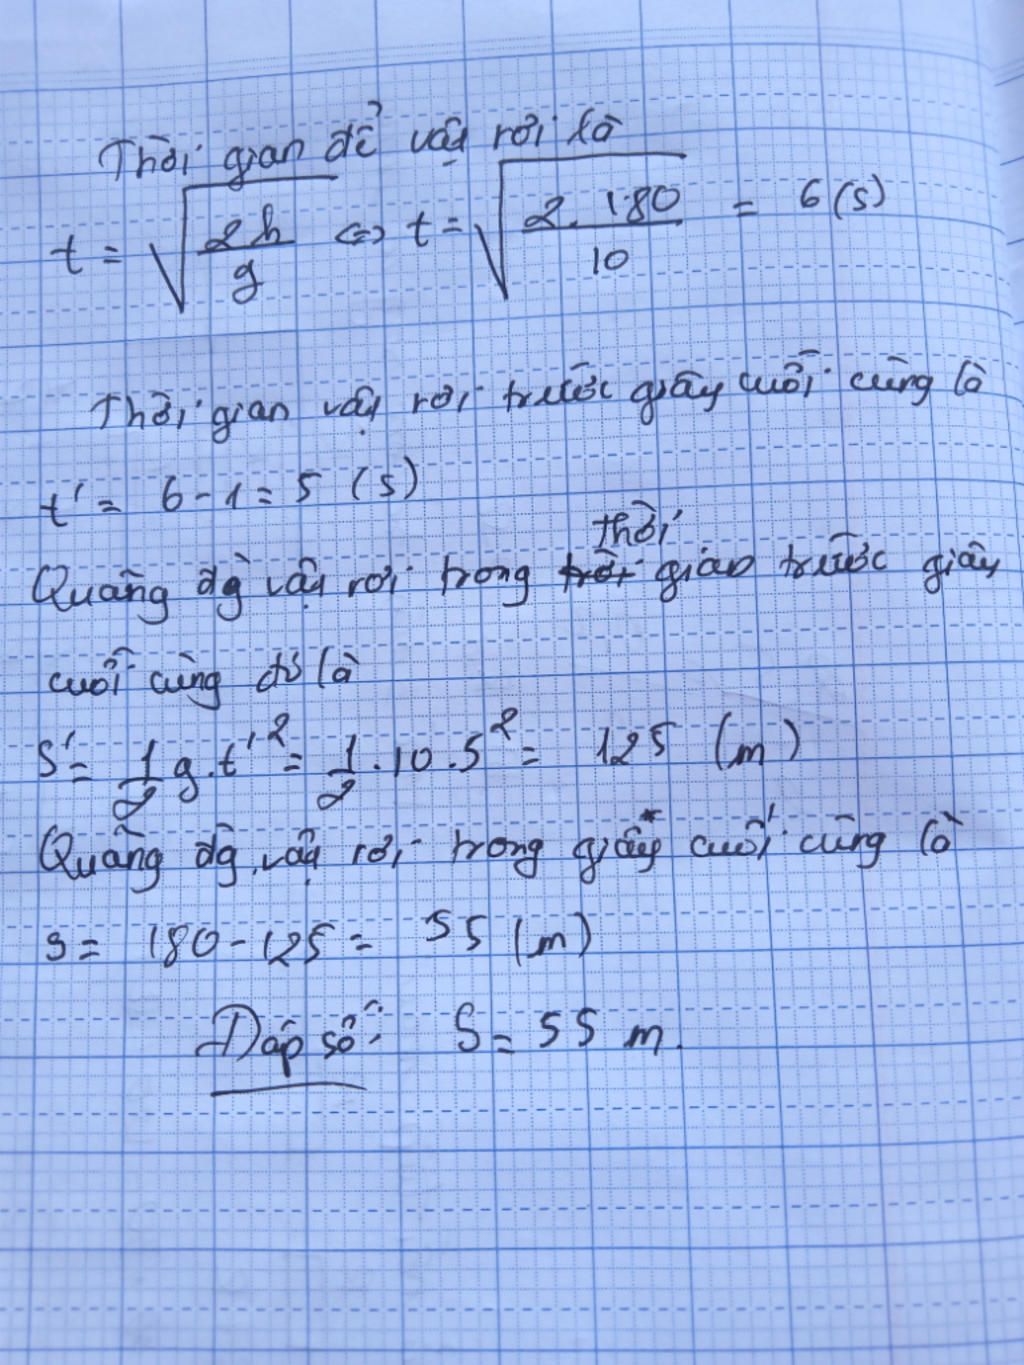 Thời gian để vật rơi là
t = √(2h/g) <=> t = √(2.180/10) = 6 (s)
Thời gian vật rơi trước giây cuối cùng là
t' = 6 - 1 = 5 (s)
Thời
Quãng đg vật rơi trong gian trước giây
cuối cùng đó là
S' = 1/2 g.t'² = 1/2 .10.5² = 125 (m)
Quãng đg vật rơi trong giây cuối cùng là
S = 180 - 125 = 55 (m)
Đáp số: S = 55 m.